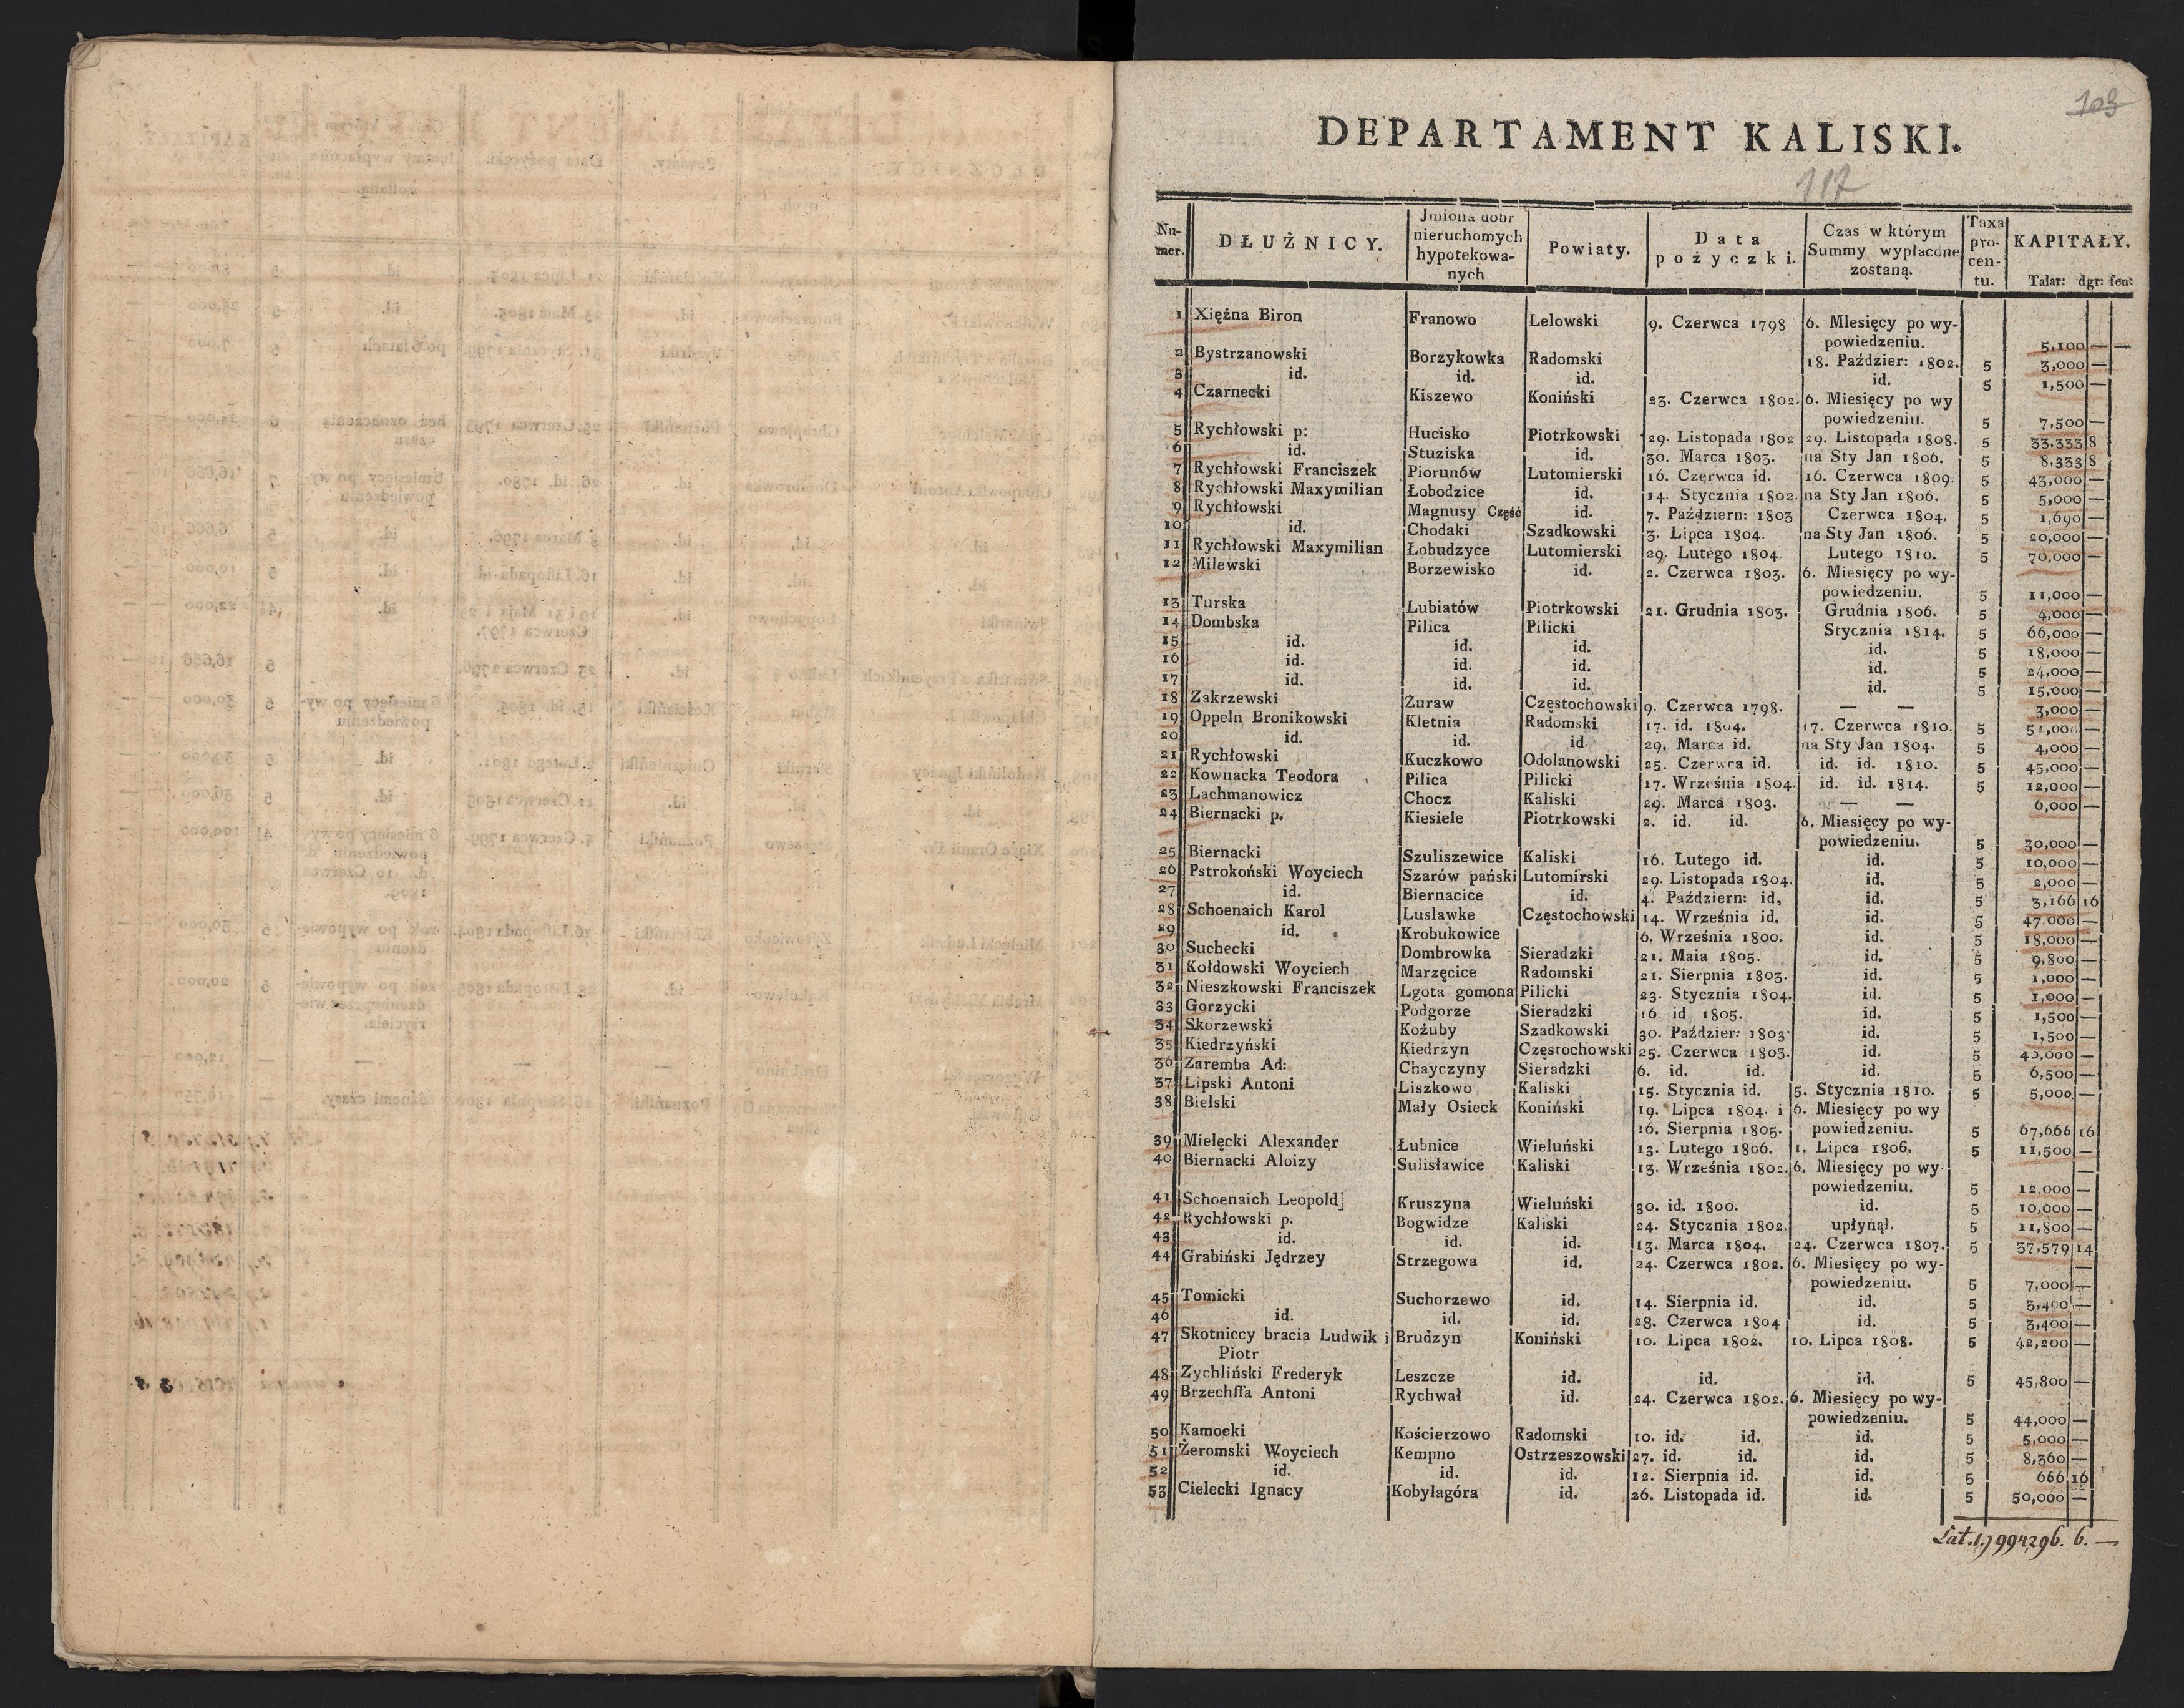 103
DEPARTAMENT KALISKI.
117
Nu-mer. DŁUŻNICY. Jmiona dobr nieruchomych hypotekowa-nych Powiaty. Data pożyczki. Czas w którym Summy wypłacone zostaną. Taxa pro-cen-tu. KAPITAŁY. Talar: dgr: fen:
1 Xiężna Biron Franowo Lelowski 9. Czerwca 1798 6. Miesięcy po wy-
powiedzeniu. 5,100 — —
2 Bystrzanowski Borzykowka Radomski 18. Paździer: 1802. 5 3,000 —
3 id. id. id. id. 5 1,500 —
4 Czarnecki Kiszewo Koniński 23. Czerwca 1802. 6. Miesięcy po wy
powiedzeniu. 5 7,500 —
5 Rychłowski p: Hucisko Piotrkowski 29. Listopada 1802 29. Listopada 1808. 5 33,333 8
6 id. Stuziska id. 30. Marca 1803. na Sty Jan 1806. 5 8,333 8
7 Rychłowski Franciszek Piorunów Lutomierski 16. Czerwca id. 16. Czerwca 1809. 5 43,000 —
8 Rychłowski Maxymilian Łobodzice id. 14. Stycznia 1802. na Sty Jan 1806. 5 5,000 —
9 Rychłowski Magnusy Część id. 7. Październ: 1803 Czerwca 1804. 5 1,690 —
10 id. Chodaki Szadkowski 3. Lipca 1804. na Sty Jan 1806. 5 20,000 —
11 Rychłowski Maxymilian Łobudzyce Lutomierski 29. Lutego 1804. Lutego 1810. 5 70,000 —
12 Milewski Borzewisko id. 2. Czerwca 1803. 6. Miesięcy po wy-
powiedzeniu. 5 11,000 —
13 Turska Lubiatów Piotrkowski 21. Grudnia 1803. Grudnia 1806. 5 4,000 —
14 Dombska Pilica Pilicki Stycznia 1814. 5 66,000 —
15 id. id. id. id. 5 18,000 —
16 id. id. id. id. 5 24,000 —
17 id. id. id. id. 5 15,000 —
18 Zakrzewski Żuraw Częstochowski 9. Czerwca 1798. — — 3,000 —
19 Oppeln Bronikowski Kletnia Radomski 17. id. 1804. 17. Czerwca 1810. 5 51,000 —
20 id. id. id 29. Marca id. na Sty Jan 1804. 5 4,000 —
21 Rychłowski Kuczkowo Odolanowski 25. Czerwca id. id. id. 1810. 5 45,000 —
22 Kownacka Teodora Pilica Pilicki 17. Września 1804. id. id. 1814. 5 12,000 —
23 Lachmanowicz Chocz Kaliski 29. Marca 1803. — — 6,000 —
24 Biernacki p. Kiesiele Piotrkowski 2. id. id. 6. Miesięcy po wy-
powiedzeniu. 5 30,000 —
25 Biernacki Szuliszewice Kaliski 16. Lutego id. id. 5 10,000 —
26 Pstrokoński Woyciech Szarów pański Lutomirski 29. Listopada 1804. id. 5 2,000 —
27 id. Biernacice id. 4. Październ: id, id. 5 3,166 16
28 Schoenaich Karol Luslawke Częstochowski 14. Września id. id. 5 47,000 —
29 id. Krobukowice 6. Września 1800. id. 5 18,000 —
30 Suchecki Dombrowka Sieradzki 21. Maia 1805. id. 5 9,800 —
31 Kołdowski Woyciech Marzęcice Radomski 21. Sierpnia 1803. id. 5 1,000 —
32 Nieszkowski Franciszek Lgota gomona Pilicki 23. Stycznia 1804. id. 5 1,000 —
33 Gorzycki Podgorze Sieradzki 16. id 1805. id. 5 1,500 —
34 Skorzewski Kożuby Szadkowski 30. Paździer: 1803 id. 5 1,500 —
35 Kiedrzyński Kiedrzyn Częstochowski 25. Czerwca 1803. id. 5 40,000 —
36 Zaremba Ad: Chayczyny Sieradzki 6. id. id. id. 5 6,500 —
37 Lipski Antoni Liszkowo Kaliski 15. Stycznia id. 5. Stycznia 1810. 5 5,000 —
38 Bielski Mały Osieck Koniński 19. Lipca 1804. i 6. Miesięcy po wy
16. Sierpnia 1805. powiedzeniu. 5 67,666 16
39 Mielęcki Alexander Łubnice Wieluński 13. Lutego 1806. 1. Lipca 1806. 5 11,500 —
40 Biernacki Aloizy Sulisławice Kaliski 13. Września 1802. 6. Miesięcy po wy —
powiedzeniu. 5 12,000 —
41 Schoenaich Leopold] Kruszyna Wieluński 30. id. 1800. id. 5 10,000 —
42 Rychłowski p. Bogwidze Kaliski 24. Stycznia 1802. upłynął. 5 11,800 —
43 id. id. id. 13. Marca 1804. 24. Czerwca 1807. 5 37,579 14
44 Grabiński Jędrzey Strzegowa id. 24. Czerwca 1802. 6. Miesięcy po wy- —
powiedzeniu. 5 7,000 —
45 Tomicki Suchorzewo id. 14. Sierpnia id. id. 5 3,400 —
46 id. id. id. 28. Czerwca 1804 id. 5 3,400 —
47 Skotniccy bracia Ludwik i Brudzyn Koniński 10. Lipca 1802. 10. Lipca 1808. 5 42,200 —
Piotr
48 Zychliński Frederyk Leszcze id. id. id. 5 45,800 —
49 Brzechffa Antoni Rychwał id. 24. Czerwca 1802. 6. Miesięcy po wy-
powiedzeniu. 5 44,000 —
50 Kamocki Kościerzowo Radomski 10. id. id. id. 5 5,000 —
51 Żeromski Woyciech Kempno Ostrzeszowski 27. id. id. id. 5 8,360 —
52 id. id. id. 12. Sierpnia id. id. 5 666 16
53 Cielecki Ignacy Kobylagóra id. 26. Listopada id. id. 5 50,000 —
Lat. 1.) 994296. 6. —